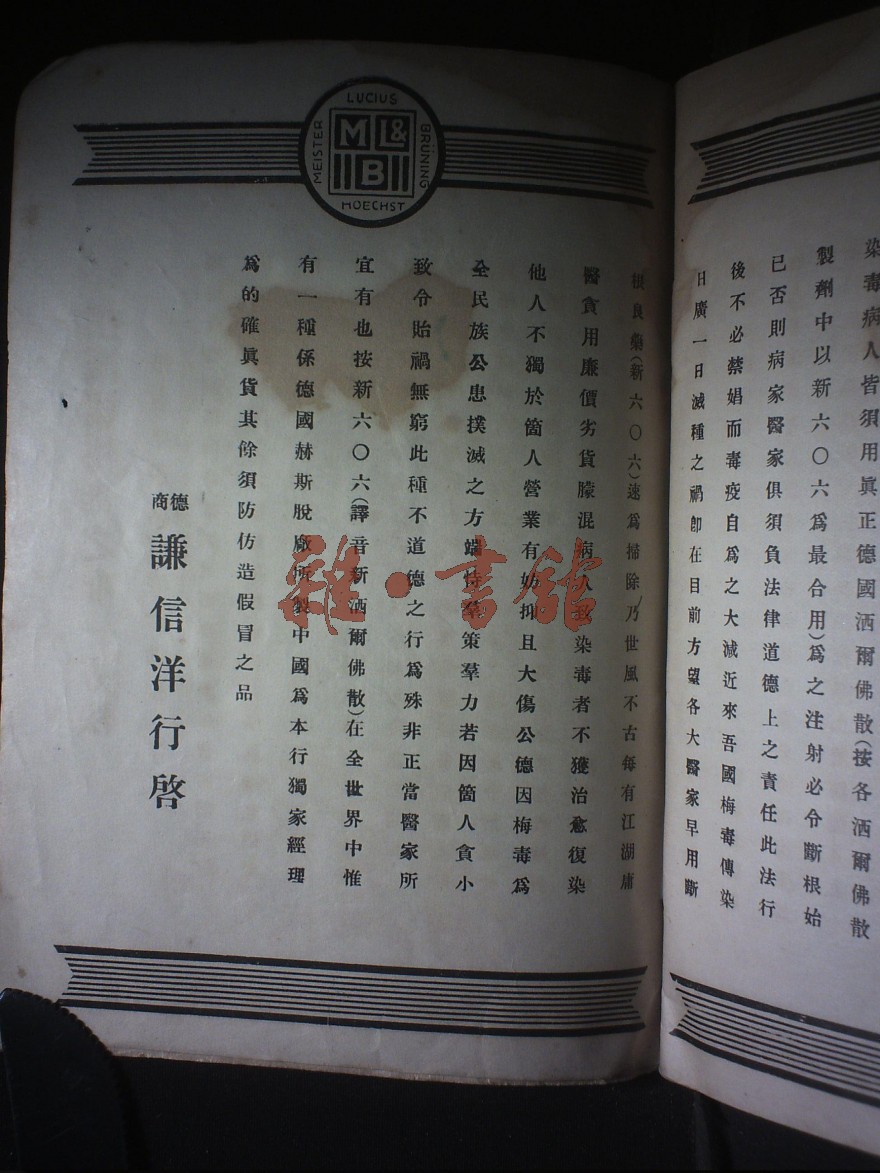 染毒病人皆須用眞正德國洒爾佛散(按各洒爾佛散
製劑中以新六〇六爲最合用)爲之注射必令斷根始
已否則病家醫家俱須負法律道德上之責任此法行
後不必禁娼而毒疫自爲之大減近來吾國梅毒傳染
日廣一日滅種之禍卽在目前方望各大醫家早用斷
LUCIUS
MEISTER
BRÜNING
ML&
B
HOECHST
根良藥(新六〇六)速爲掃除乃世風不古每有江湖庸
醫貪用廉價劣貨朦混病人致染毒者不獲治愈復染
他人不獨於箇人營業有妨抑且大傷公德因梅毒爲
全民族公患撲滅之方端恃羣策羣力若因箇人貪小
致令貽禍無窮此種不道德之行爲殊非正當醫家所
宜有也按新六〇六(譯音新洒爾佛散)在全世界中惟
有一種係德國赫斯脫廠所製中國爲本行獨家經理
爲的確眞貨其餘須防仿造假冒之品
德商
謙信洋行啓
雜·書館